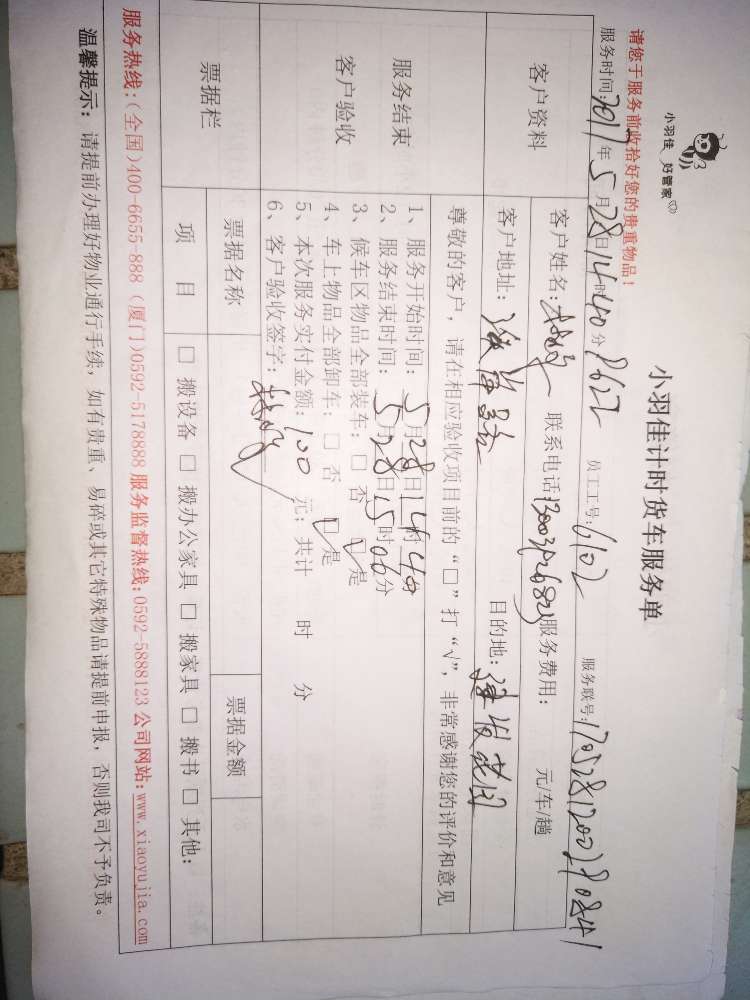 小羽佳 好管家
小羽佳计时货车服务单
请您于服务前收拾好您的贵重物品！
服务时间:2017年5月28日14时40分 员工工号:6102 服务联号:
客户资料
客户姓名: 联系电话: 服务费用: 元/车/趟
客户地址: 目的地:建发花园
服务结束
客户验收
尊敬的客户，请在相应验收项目前的“□”打“√”，非常感谢您的评价和意见
1、服务开始时间：5月28日14时40分
2、服务结束时间：5月28日15时06分
3、候车区物品全部装车：□ 否 □是
4、车上物品全部卸车：□ 否 □是
5、本次服务实付金额:100 元；共计 时 分
6、客户验收签字：
票据栏
票据名称 票据金额
项 目 □ 搬设备 □ 搬办公家具 □ 搬家具 □ 搬书 □ 其他：
服务热线:(全国)400-6655-888 (厦门)0592-5178888 服务监督热线:0592-5888123 公司网站:www.xiaoyujia.com
温馨提示：请提前办理好物业通行手续，如有贵重、易碎或其它特殊物品请提前申报，否则我司不予负责。